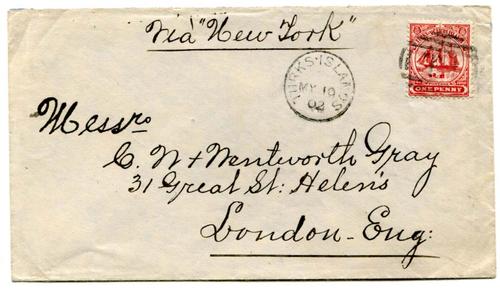 Via "New York"
TURKS·ISLANDS
MY 10
02
ONE PENNY
Messrs
C. N + Wentworth Gray
31 Great St: Helen's
London - Eng: